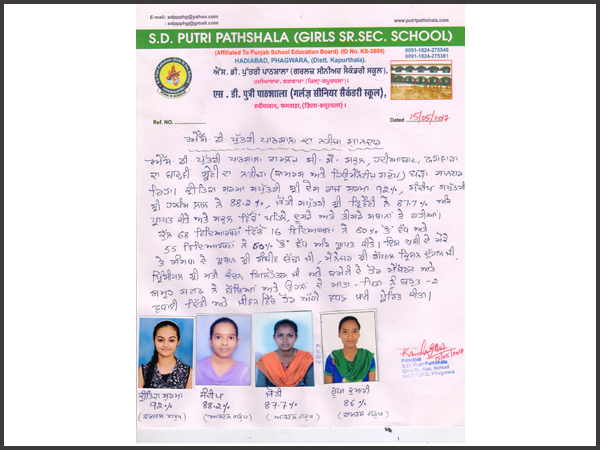 E-mail: sdppphg@yahoo.com
sdppphg@gmail.com
www.putripathshala.com
S.D. PUTRI PATHSHALA (GIRLS SR.SEC. SCHOOL)
(Affiliated To Punjab School Education Board) (ID No. KS-3809)
HADIABAD, PHAGWARA, (Distt. Kapurthala).
0091-1824-275546
0091-1824-275361
ਐਸ. ਡੀ. ਪੁੱਤਰੀ ਪਾਠਸ਼ਾਲਾ (ਗਰਲਜ਼ ਸੀਨੀਅਰ ਸੈਕੰਡਰੀ ਸਕੂਲ),
ਹਦੀਆਬਾਦ, ਫਗਵਾੜਾ
एस. डी. पुत्री पाठशाला (गर्लज़ सीनियर सैकंडरी स्कूल),
हदीयाबाद, फगवाड़ा, (ज़िला-कपूरथला)।
Ref. NO.
Dated 15/05/2017
ਐਸ. ਡੀ. ਪੁੱਤਰੀ ਪਾਠਸ਼ਾਲਾ ਦਾ ਨਤੀਜਾ ਸ਼ਾਨਦਾਰ
ਐਸ. ਡੀ. ਪੁੱਤਰੀ ਪਾਠਸ਼ਾਲਾ ਗਰਲਜ਼ ਸੀ. ਸੈ. ਸਕੂਲ, ਹਦੀਆਬਾਦ, ਫਗਵਾੜਾ
ਦਾ ਬਾਰ੍ਹਵੀਂ ਸ਼੍ਰੇਣੀ ਦਾ ਨਤੀਜਾ (ਕਾਮਰਸ ਅਤੇ ਗਰੁੱਪ) ਸ਼ਾਨਦਾਰ
ਰਿਹਾ। ਸ਼ਰਮਾ ਸਪੁੱਤਰੀ ਸ਼੍ਰੀ ਰਾਜ ਸ਼ਰਮਾ 92%, ਸੰਦੀਪ ਸਪੁੱਤਰੀ
ਸ਼੍ਰੀ ਲਾਲ ਨੇ 88.2%, ਜੋਤੀ ਸਪੁੱਤਰੀ ਸ਼੍ਰੀ ਨੇ 87.7% ਅੰਕ
ਪ੍ਰਾਪਤ ਕੀਤੇ ਅਤੇ ਸਕੂਲ ਵਿੱਚੋਂ ਪਹਿਲੇ, ਦੂਸਰੇ ਅਤੇ ਤੀਸਰੇ ਸਥਾਨ ਤੇ ਰਹੀਆਂ।
ਕੁੱਲ 68 ਵਿਦਿਆਰਥਣਾਂ ਵਿੱਚੋਂ 16 ਵਿਦਿਆਰਥਣਾਂ ਨੇ 80% ਤੋਂ ਵੱਧ ਅਤੇ
55 ਵਿਦਿਆਰਥਣਾਂ ਨੇ 60% ਤੋਂ ਵੱਧ ਅੰਕ ਪ੍ਰਾਪਤ ਕੀਤੇ। ਇਸ ਖੁਸ਼ੀ ਦੇ ਮੌਕੇ
ਤੇ ਦੇ ਪ੍ਰਧਾਨ ਸ਼੍ਰੀ ਜੀ, ਮੈਨੇਜਰ ਸ਼੍ਰੀ ਜੀ,
ਪ੍ਰਿੰਸੀਪਲ ਸ਼੍ਰੀ ਮਤੀ ਜੀ ਅਤੇ ਕਮੇਟੀ ਦੇ ਹੋਰ ਮੈਂਬਰਾਂ ਅਤੇ
ਸਮੂਹ ਸਟਾਫ਼ ਨੇ ਬੱਚਿਆਂ ਅਤੇ ਉਹਨਾਂ ਦੇ ਮਾਤਾ-ਪਿਤਾ ਨੂੰ ਬਹੁਤ-2
ਵਧਾਈ ਦਿੱਤੀ ਅਤੇ ਜੀਵਨ ਵਿੱਚ ਹੋਰ ਅੱਗੇ ਵਧਣ ਲਈ ਪ੍ਰੇਰਿਤ ਕੀਤਾ।
Principal
S.D. Putri Pathshala
Girls Sr. Sec. School
HADIABAD, Phagwara.
15/05/2017
ਸ਼ਰਮਾ
92%
(ਕਾਮਰਸ ਗਰੁੱਪ)
ਸੰਦੀਪ
88.2%
(ਆਰਟਸ ਗਰੁੱਪ)
ਜੋਤੀ
87.7%
(ਆਰਟਸ ਗਰੁੱਪ)
ਕੁਮਾਰੀ
86%
(ਕਾਮਰਸ ਗਰੁੱਪ)